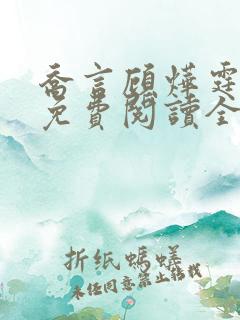 喬言顧燁霆
免費閱讀全
折纸螞蟻
未经同意禁止转载